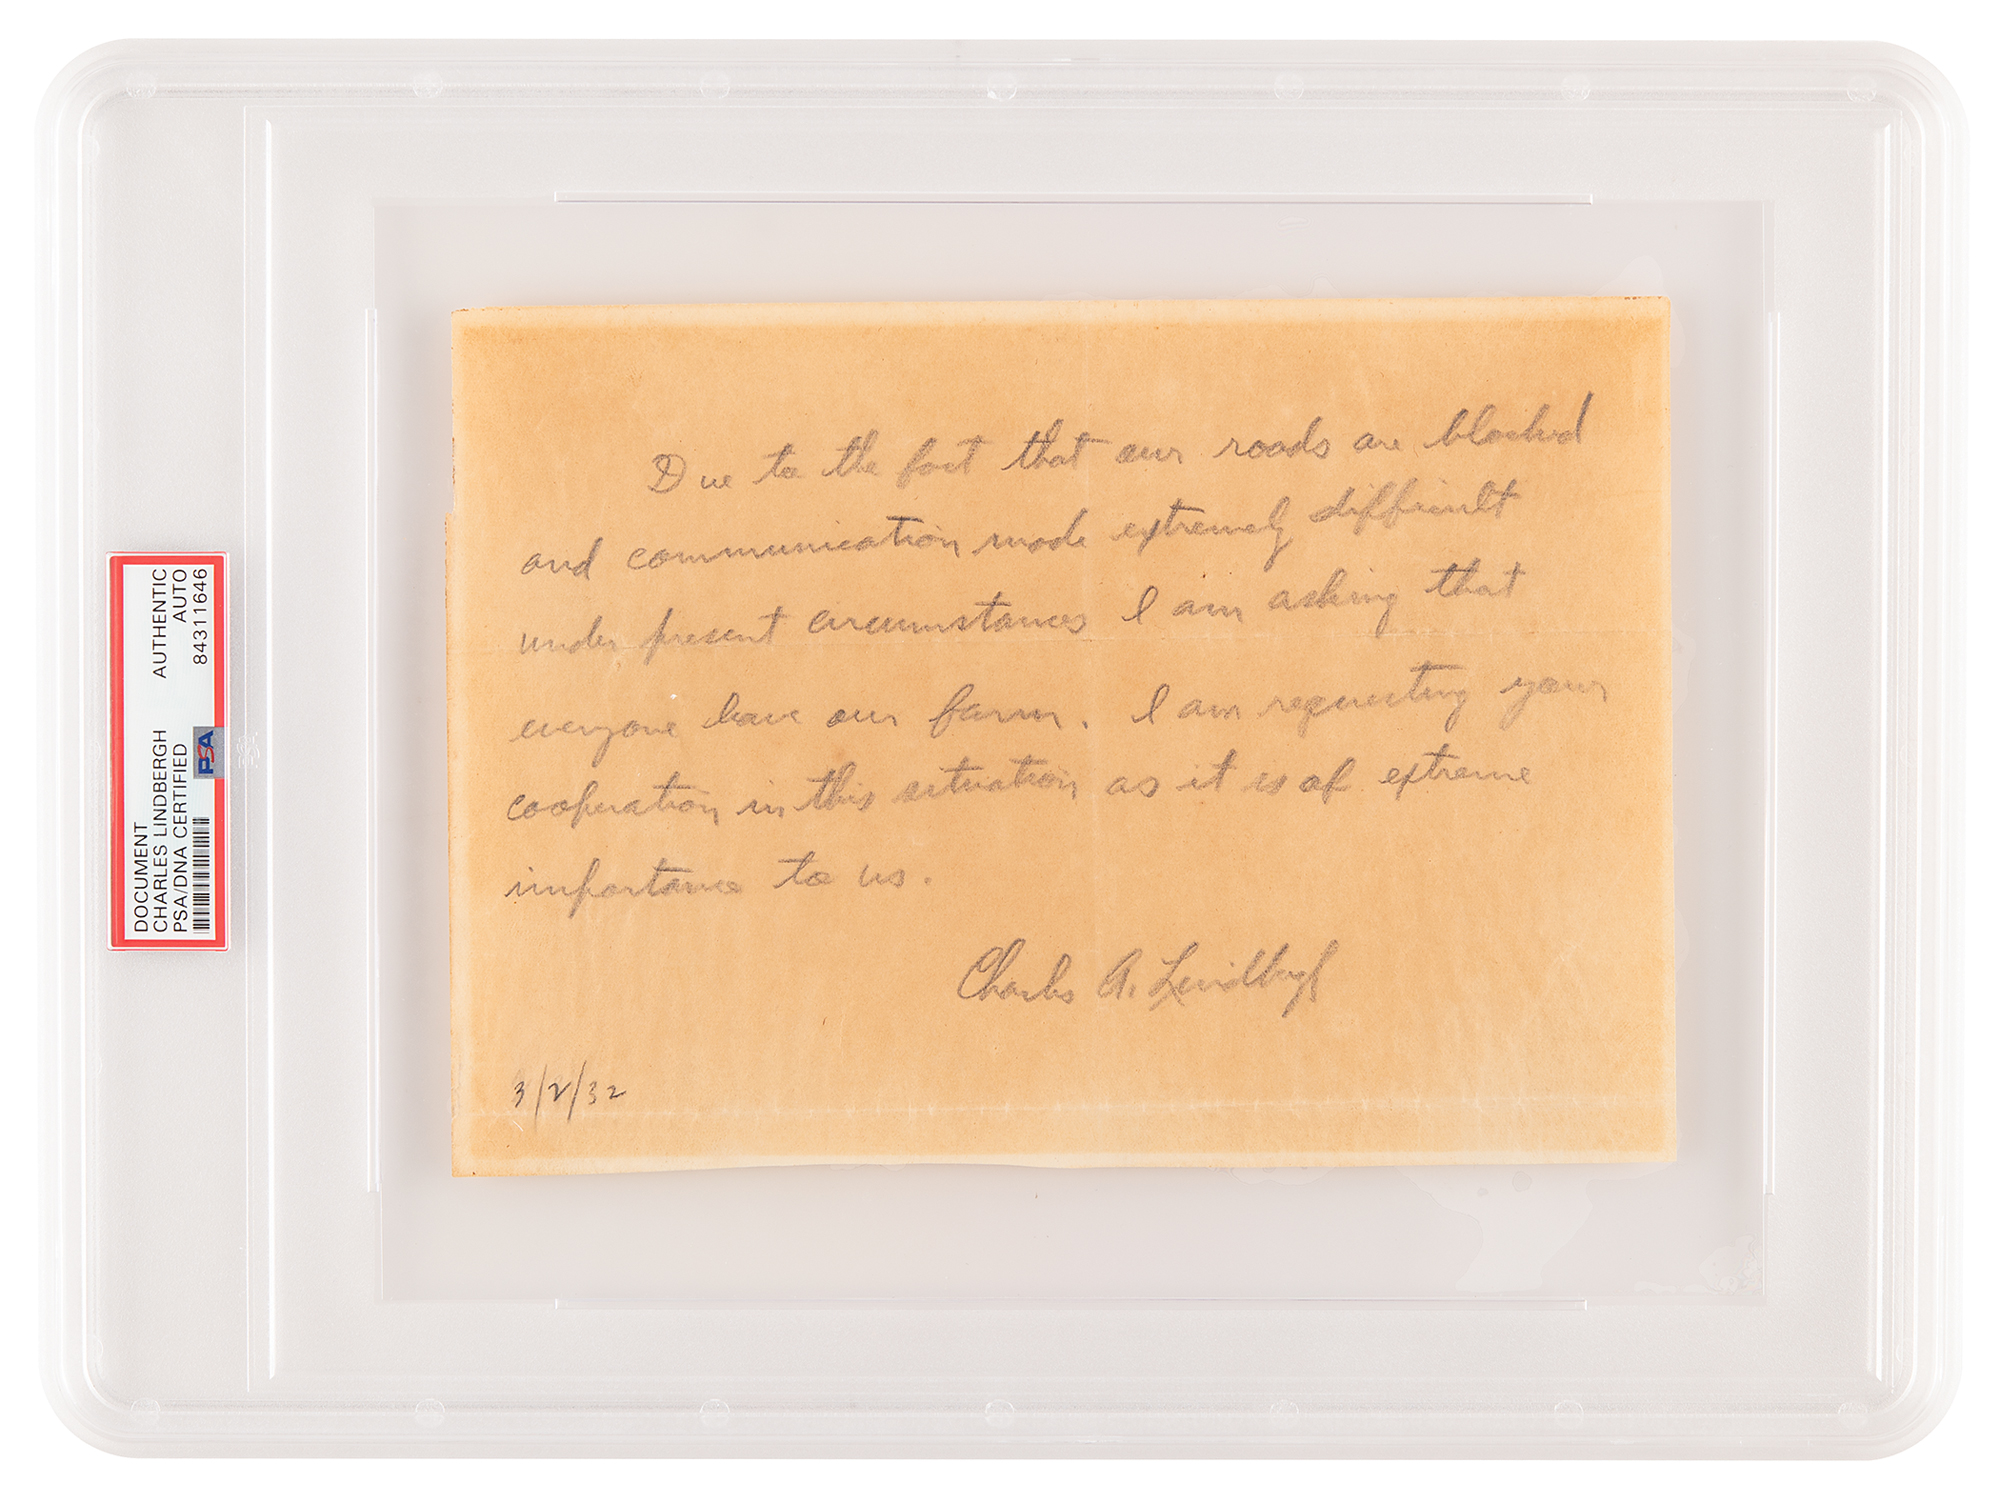 Due to the fact that our roads are blocked
and communication made extremely difficult
under present circumstances I am asking that
everyone leave our farm. I am requesting your
cooperation in this situation as it is of extreme
importance to us.
Charles A. Lindbergh
3/2/32
DOCUMENT AUTHENTIC
CHARLES LINDBERGH AUTO
PSA/DNA CERTIFIED
84311646
PSA